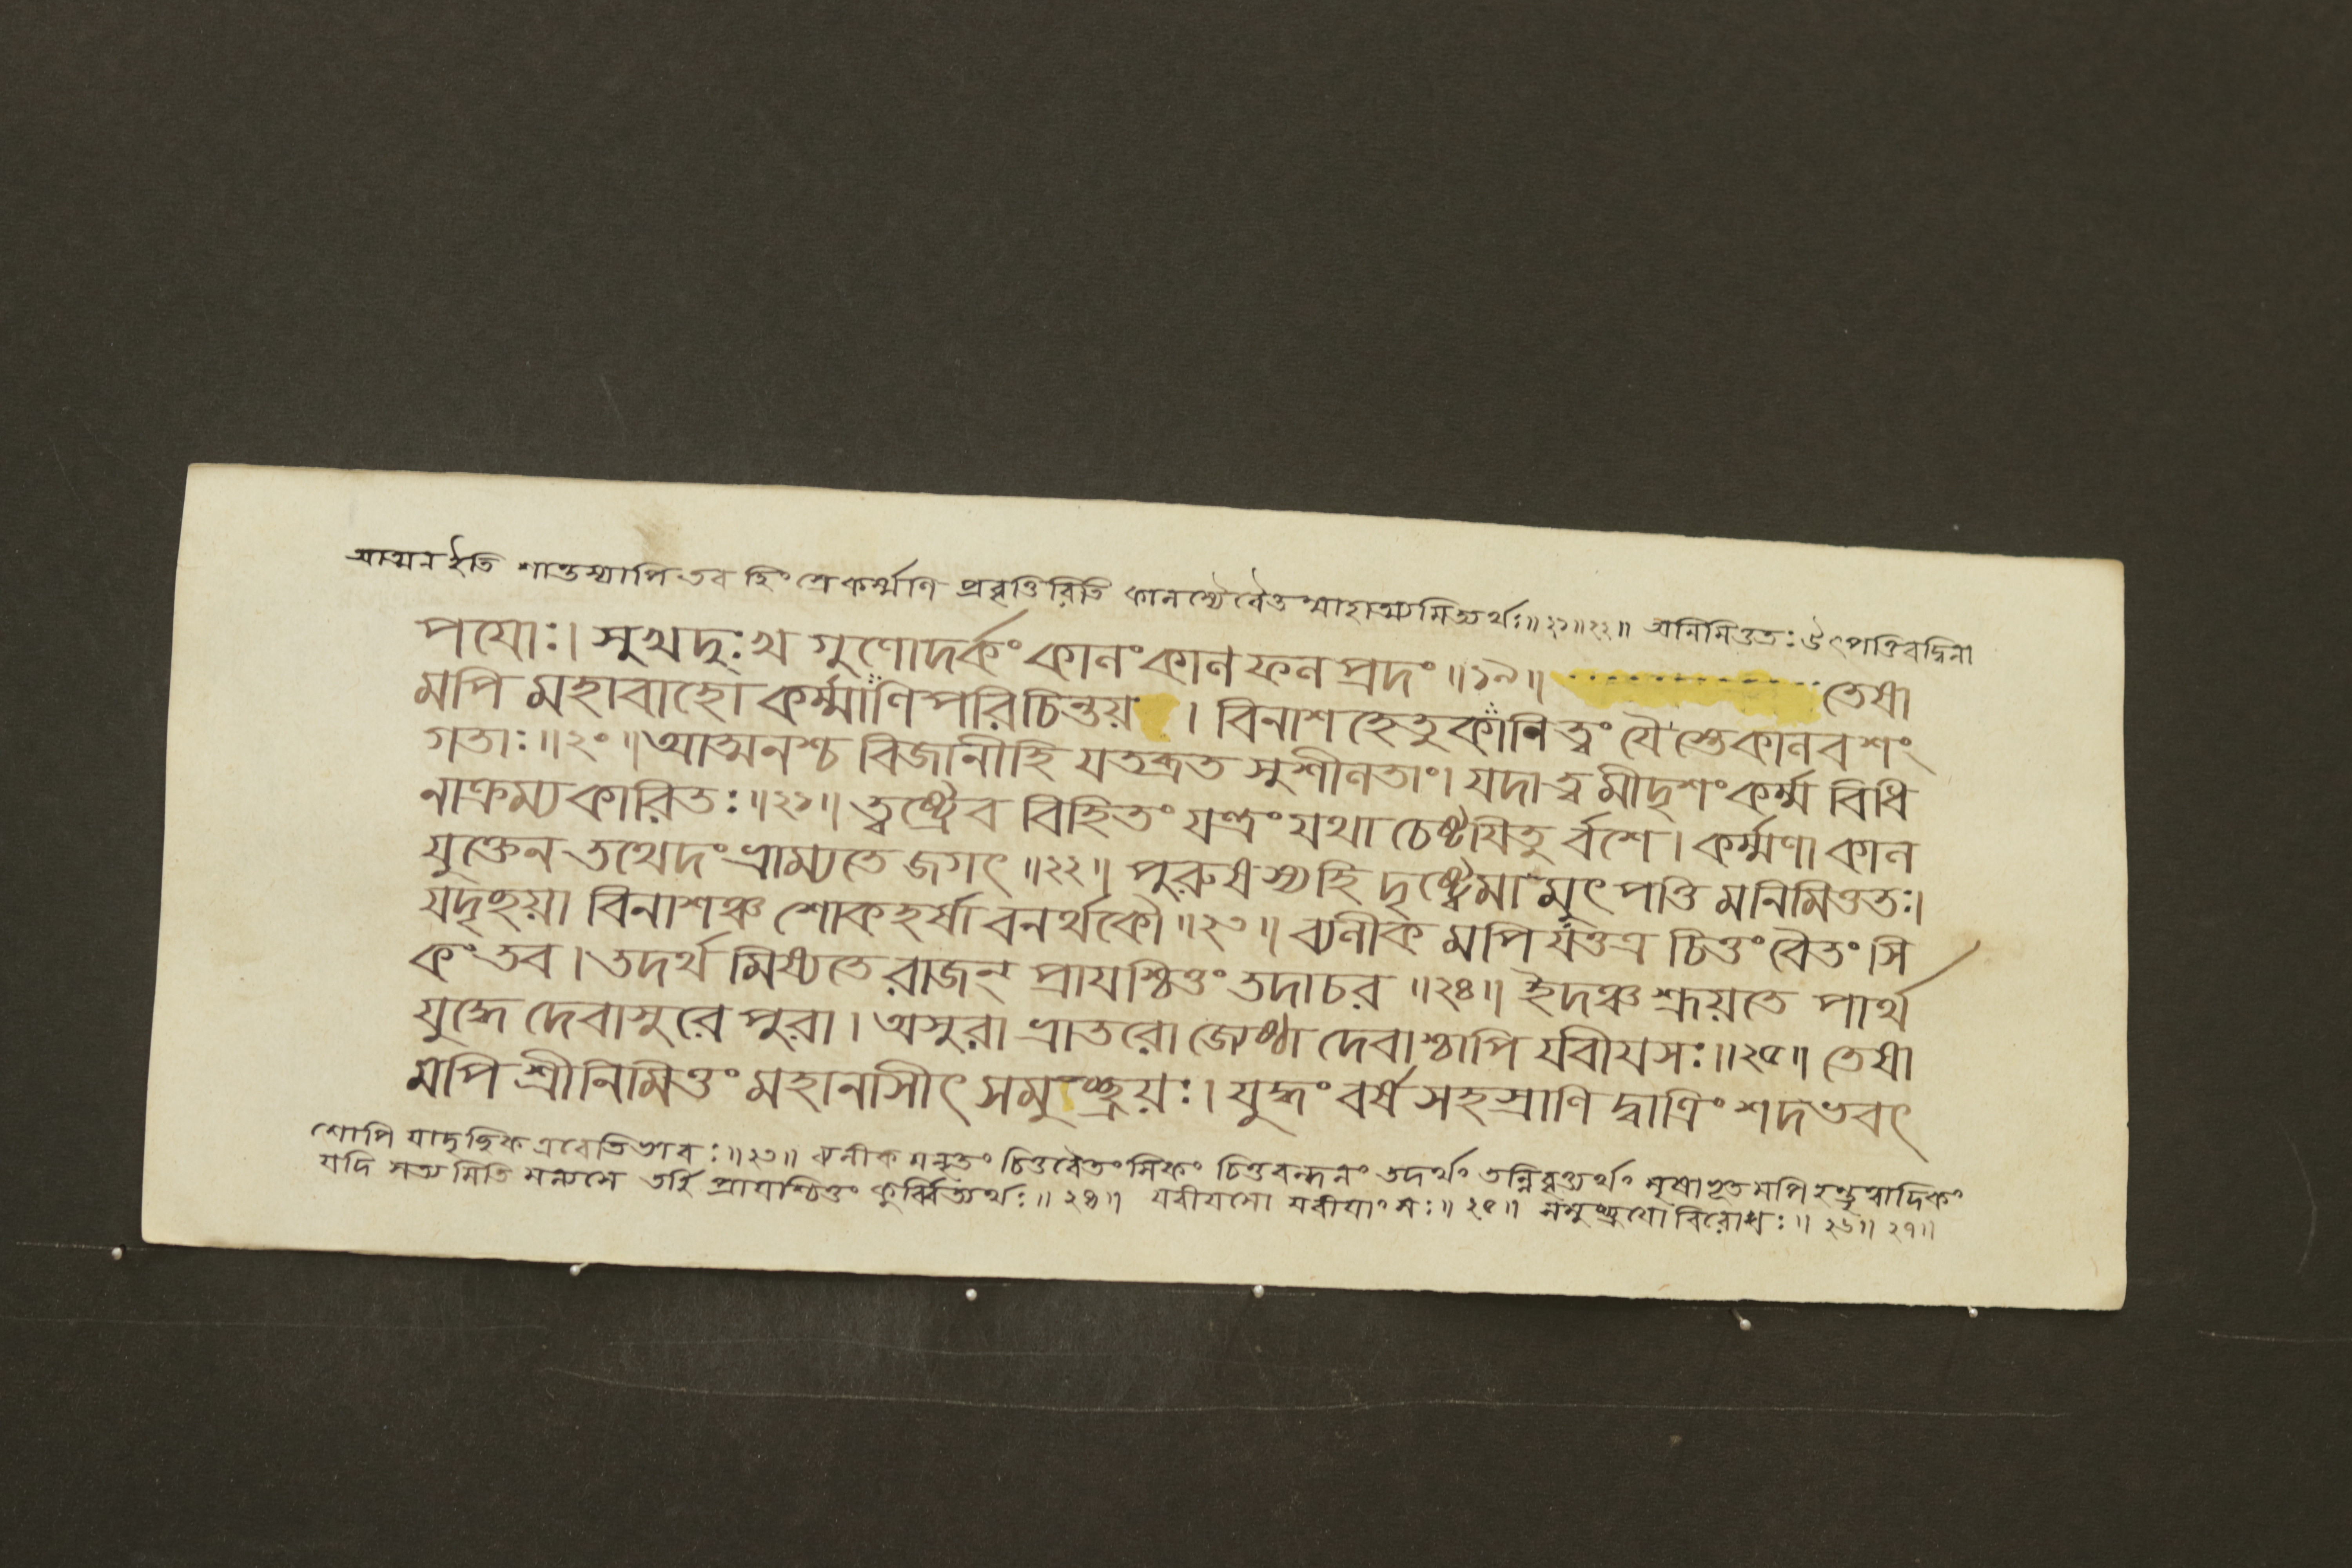 আত্মন ইতি শান্তস্যাপি তব হিংস্রে কর্ম্মণি প্রবৃত্তিরিতি কালস্যৈবৈতন্মাহাত্ম্যমিত্যর্থঃ॥২১॥২২॥ অনিমিত্ততঃ উৎপত্তিবদ্বিনা
পযোঃ। সুখদুঃখ গুণোদর্কং কালং কাল ফল প্রদং ॥১৯॥ তেষা
মপি মহাবাহো কর্ম্মাণি পরিচিন্তয় । বিনাশ হেতুকানি ত্বং যৈস্তে কালবশং
গতাঃ॥২০॥ আত্মনশ্চ বিজানীহি যতব্রত সুশীলতাং। যদা ত্ব মীদৃশং কর্ম্ম বিধি
নাক্রম্য কারিতঃ॥২১॥ ত্বষ্ট্রেব বিহিতং যন্ত্রং যথা চেষ্টযিতু র্বশে। কর্ম্মণা কাল
যুক্তেন তথেদং ভ্রাম্যতে জগৎ ॥২২॥ পুরুষস্য হি দৃষ্ট্বেমা মুৎপত্তি মনিমিত্ততঃ।
যদৃচ্ছয়া বিনাশঞ্চ শোকহর্ষা বনর্থকৌ ॥২৩॥ ব্যলীক মপি যত্তত্র চিত্তং বৈতং সি
কং তব। তদর্থ মিষ্যতে রাজন্ প্রাযশ্চিত্তং তদাচর ॥২৪॥ ইদঞ্চ শ্রূয়তে পার্থ
যুদ্ধে দেবাসুরে পুরা। অসুরা ভ্রাতরো জ্যেষ্ঠা দেবাশ্চাপি যবীযসঃ॥২৫॥ তেষা
মপি শ্রীনিমিত্তং মহানাসীৎ সমুচ্ছ্রয়ঃ। যুদ্ধং বর্ষ সহস্রাণি দ্বাত্রিং শদভবৎ
শোপি যাদৃচ্ছিক এবেতি ভাবঃ॥২৩॥ ব্যলীক মনৃতং চিত্তবৈতংসিকং চিত্তবন্ধনং তদর্থং তন্নিবৃত্ত্যর্থং মৃষাভূতমপি হন্তৃত্বাদিকং
যদি সত্যমিতি মন্যসে তর্হি প্রাযশ্চিত্তং কুর্ব্বিত্যর্থঃ॥২৪॥ যবীযসো যবীযাংসঃ॥২৫॥ সমুচ্ছ্রযো বিরোধঃ॥২৬॥২৭॥